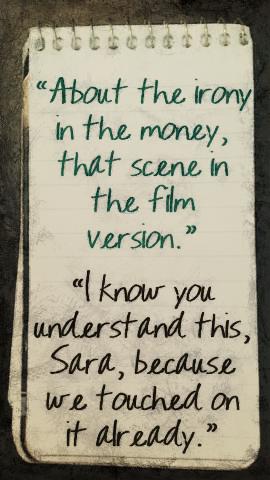 “About the irony
in the money,
that scene in
the film
version.”
“I know you
understand this,
Sara, because
we touched on
it already.”